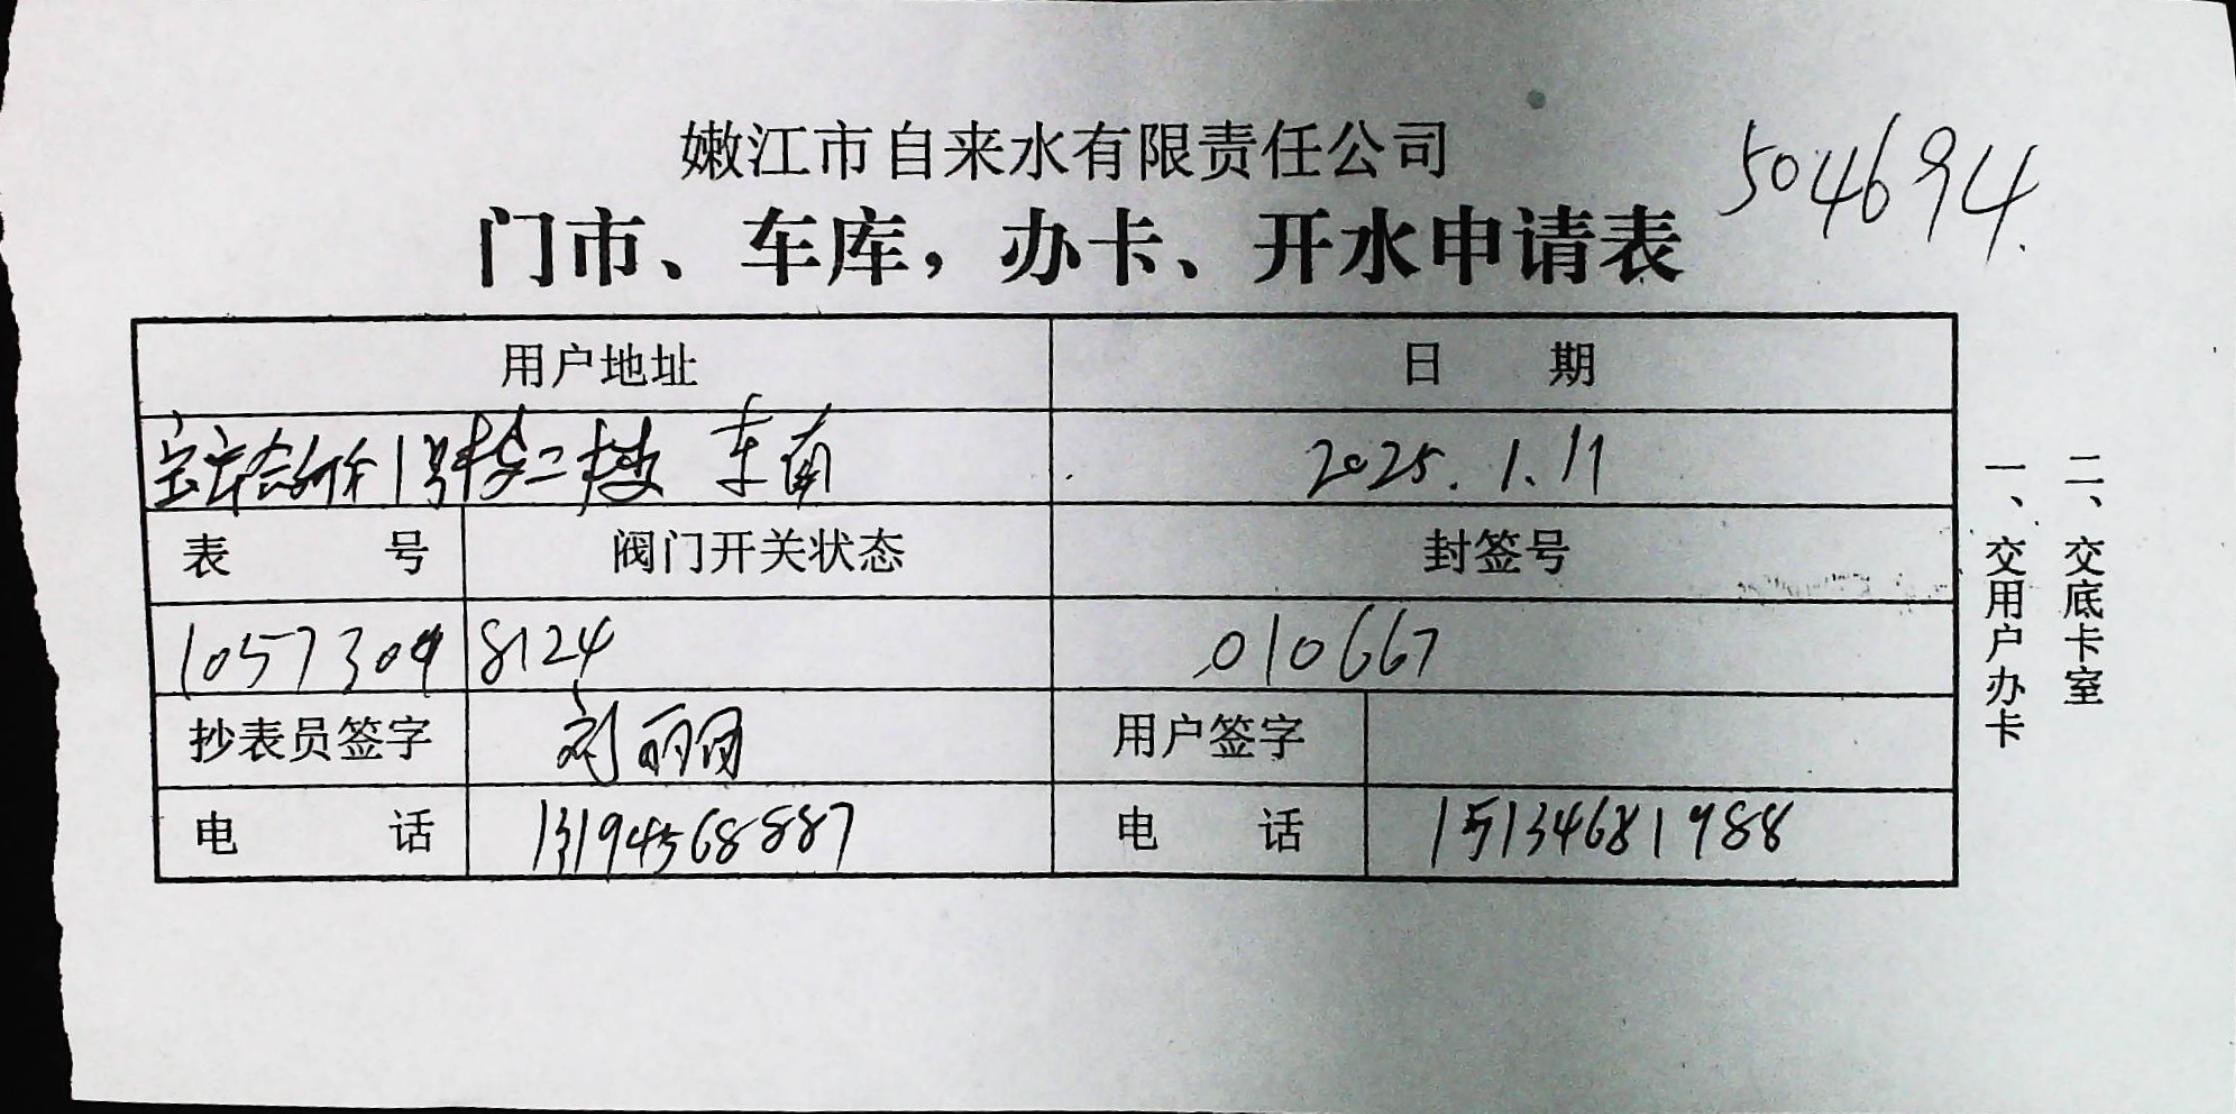 嫩江市自来水有限责任公司
504694.
门市、车库，办卡、开水申请表
用户地址 日 期
1号楼二楼 车有 2025.1.11
表 号 阀门开关状态 封签号
1057304 8124 010667
抄表员签字 刘丽 用户签字
电 话 13194568887 电 话 15134681988
一、交用户办卡
二、交底卡室